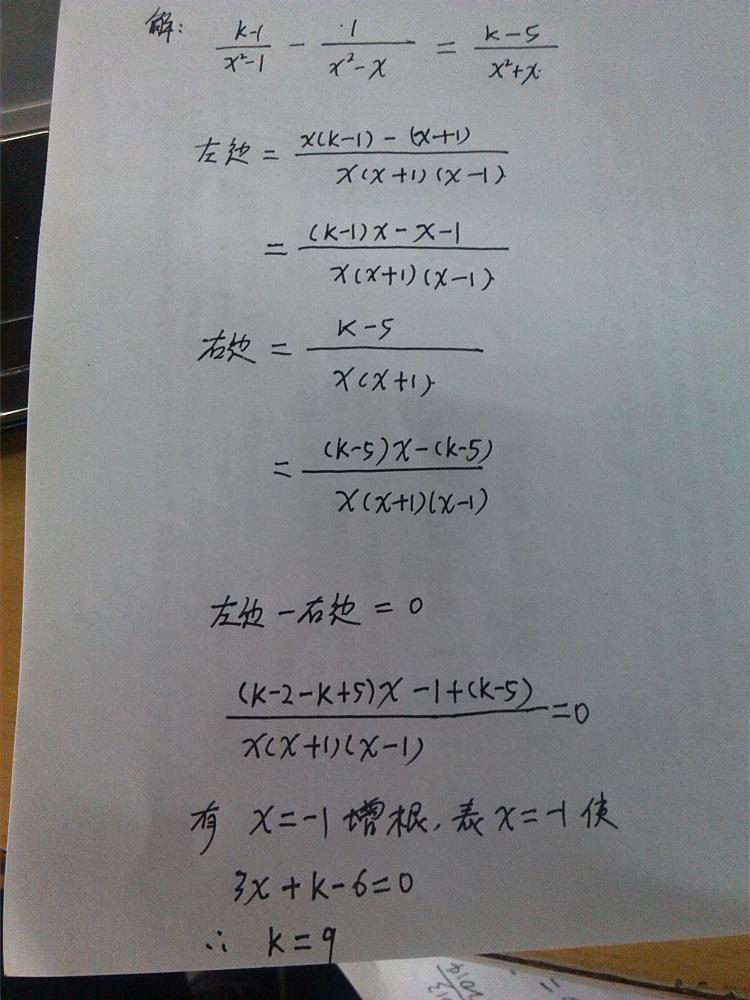 解: (k-1)/(x²-1) - 1/(x²-x) = (k-5)/(x²+x)
左边 = (x(k-1)-(x+1))/(x(x+1)(x-1))
= ((k-1)x-x-1)/(x(x+1)(x-1))
右边 = (k-5)/(x(x+1))
= ((k-5)x-(k-5))/(x(x+1)(x-1))
左边-右边=0
((k-2-k+5)x-1+(k-5))/(x(x+1)(x-1)) =0
有 x=-1 增根, 表 x=-1 使
3x+k-6=0
∴ k=9